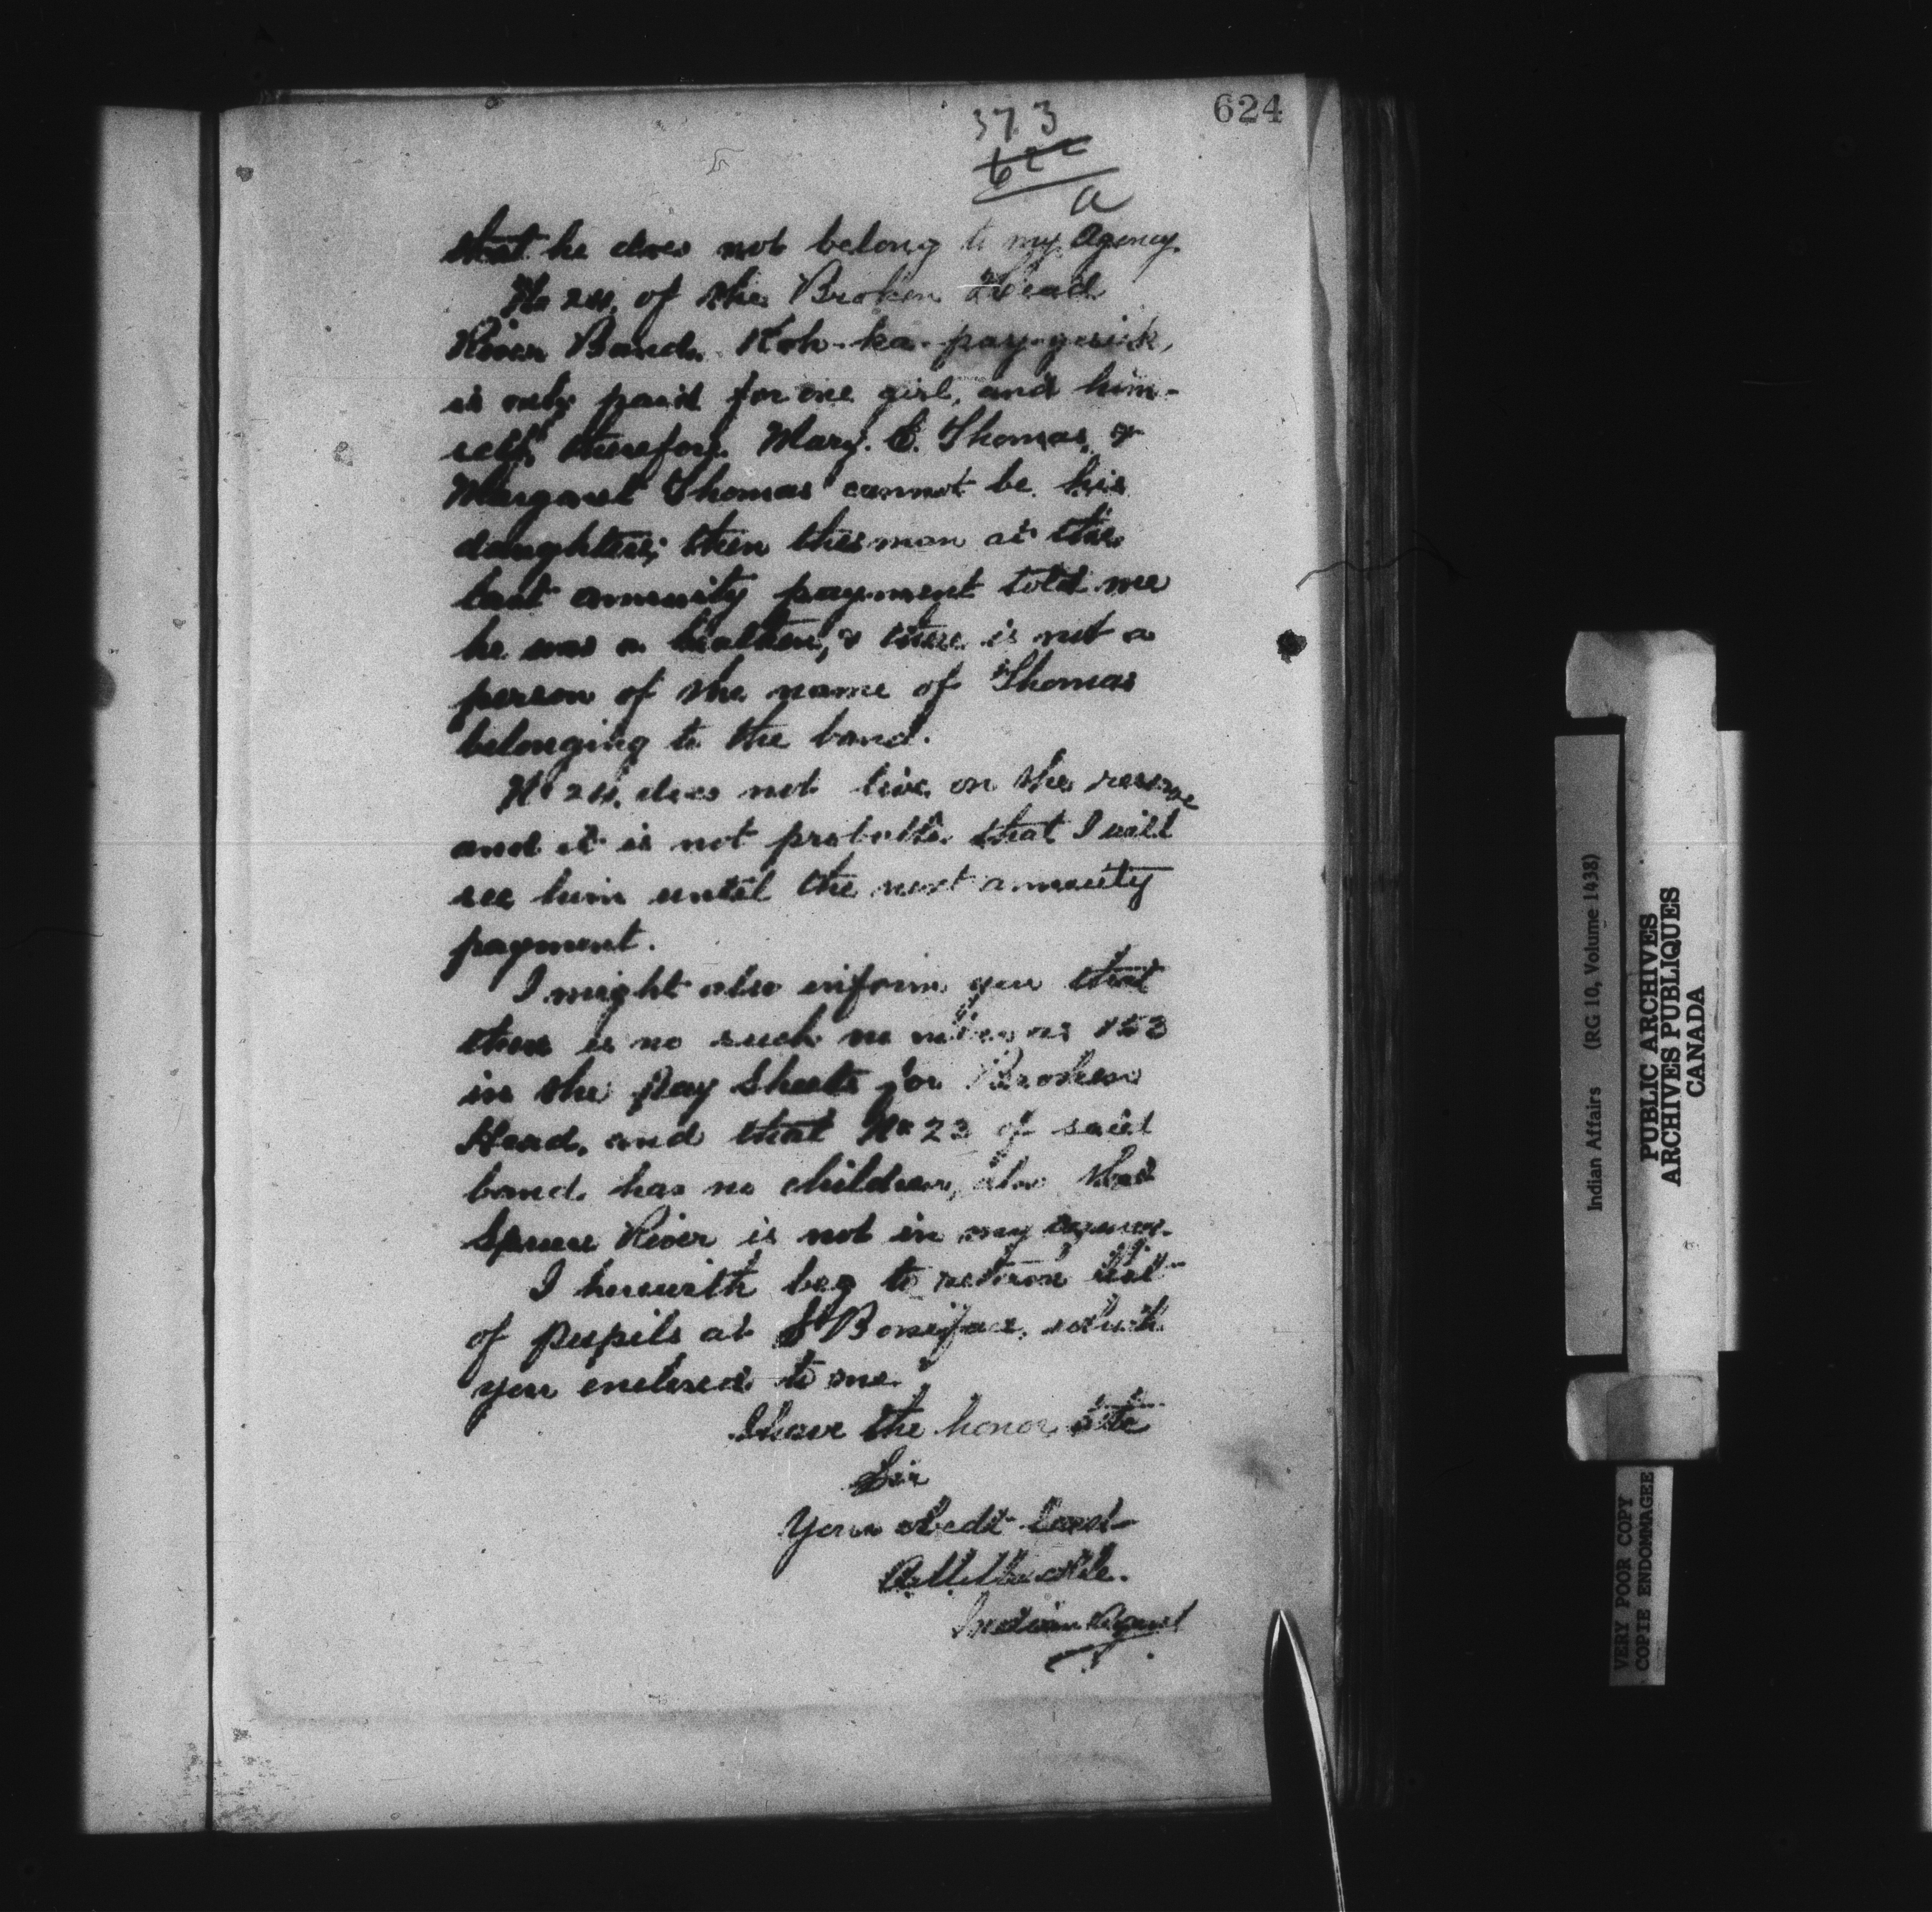 624
373
622
a
that he does not belong to my Agency.
No 24, of the Broken Head
River Band. Koh-ka-pay-gesick,
is only paid for one girl, and him-
self, therefore Mary. E. Thomas, &
Margaret Thomas cannot be his
daughters; then this man at the
last annuity payment told me
he was a heathen, & there is not a
person of the name of Thomas
belonging to the band.
No 24. does not live on the reserve
and it is not probable that I will
see him until the next annuity
payment.
I might also inform you that
there is no such number as 153
in the Pay Sheets for Broken
Head, and that No 23 of said
band has no children, also that
Spruce River is not in my agency.
I herewith beg to return list
of pupils at St Boniface, which
you enclosed to me.
I have the honor
Sir
Your obedt servt
Indian Agent
Indian Affairs (RG 10, Volume 1438)
PUBLIC ARCHIVES
ARCHIVES PUBLIQUES
CANADA
VERY POOR COPY
COPIE ENDOMMAGEE